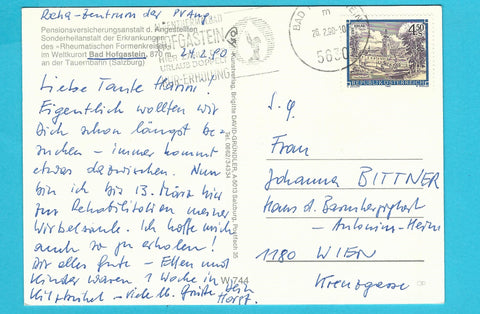 Reha-Zentrum der PVAng
Pensionsversicherungsanstalt d. Angestellten
Sonderheilanstalt der Erkrankungen
des »Rheumatischen Formenkreises«
im Weltkurort Bad Hofgastein, 870 m
an der Tauernbahn (Salzburg)
24.2.90
Liebe Tante Hanni!
Eigentlich wollten wir
Dich schon längst be-
suchen – immer kommt
etwas dazwischen. Nun
bin ich bis 13. März hier
zur Rehabilitation meiner
Wirbelsäule. Ich hoffe mich
auch so zu erholen!
Dir alles Gute – Ellen und
Kinder waren 1 Woche in
Kitzbühel – viele lb. Grüße Dein
Horst.
HOFGASTEIN
URLAUB DOPPELT
KUR-ERHOLUNG
Brigitte DAVID-GRÜNDLER, A-5010 Salzburg, Postfach 35
W 744
BAD
26.2.90-10
5630
4.50
REPUBLIK ÖSTERREICH
S. g.
Frau
Johanna BITTNER
Haus d. Barmherzigkeit
– Antonius-Heim
1180 WIEN
Kreuzgasse